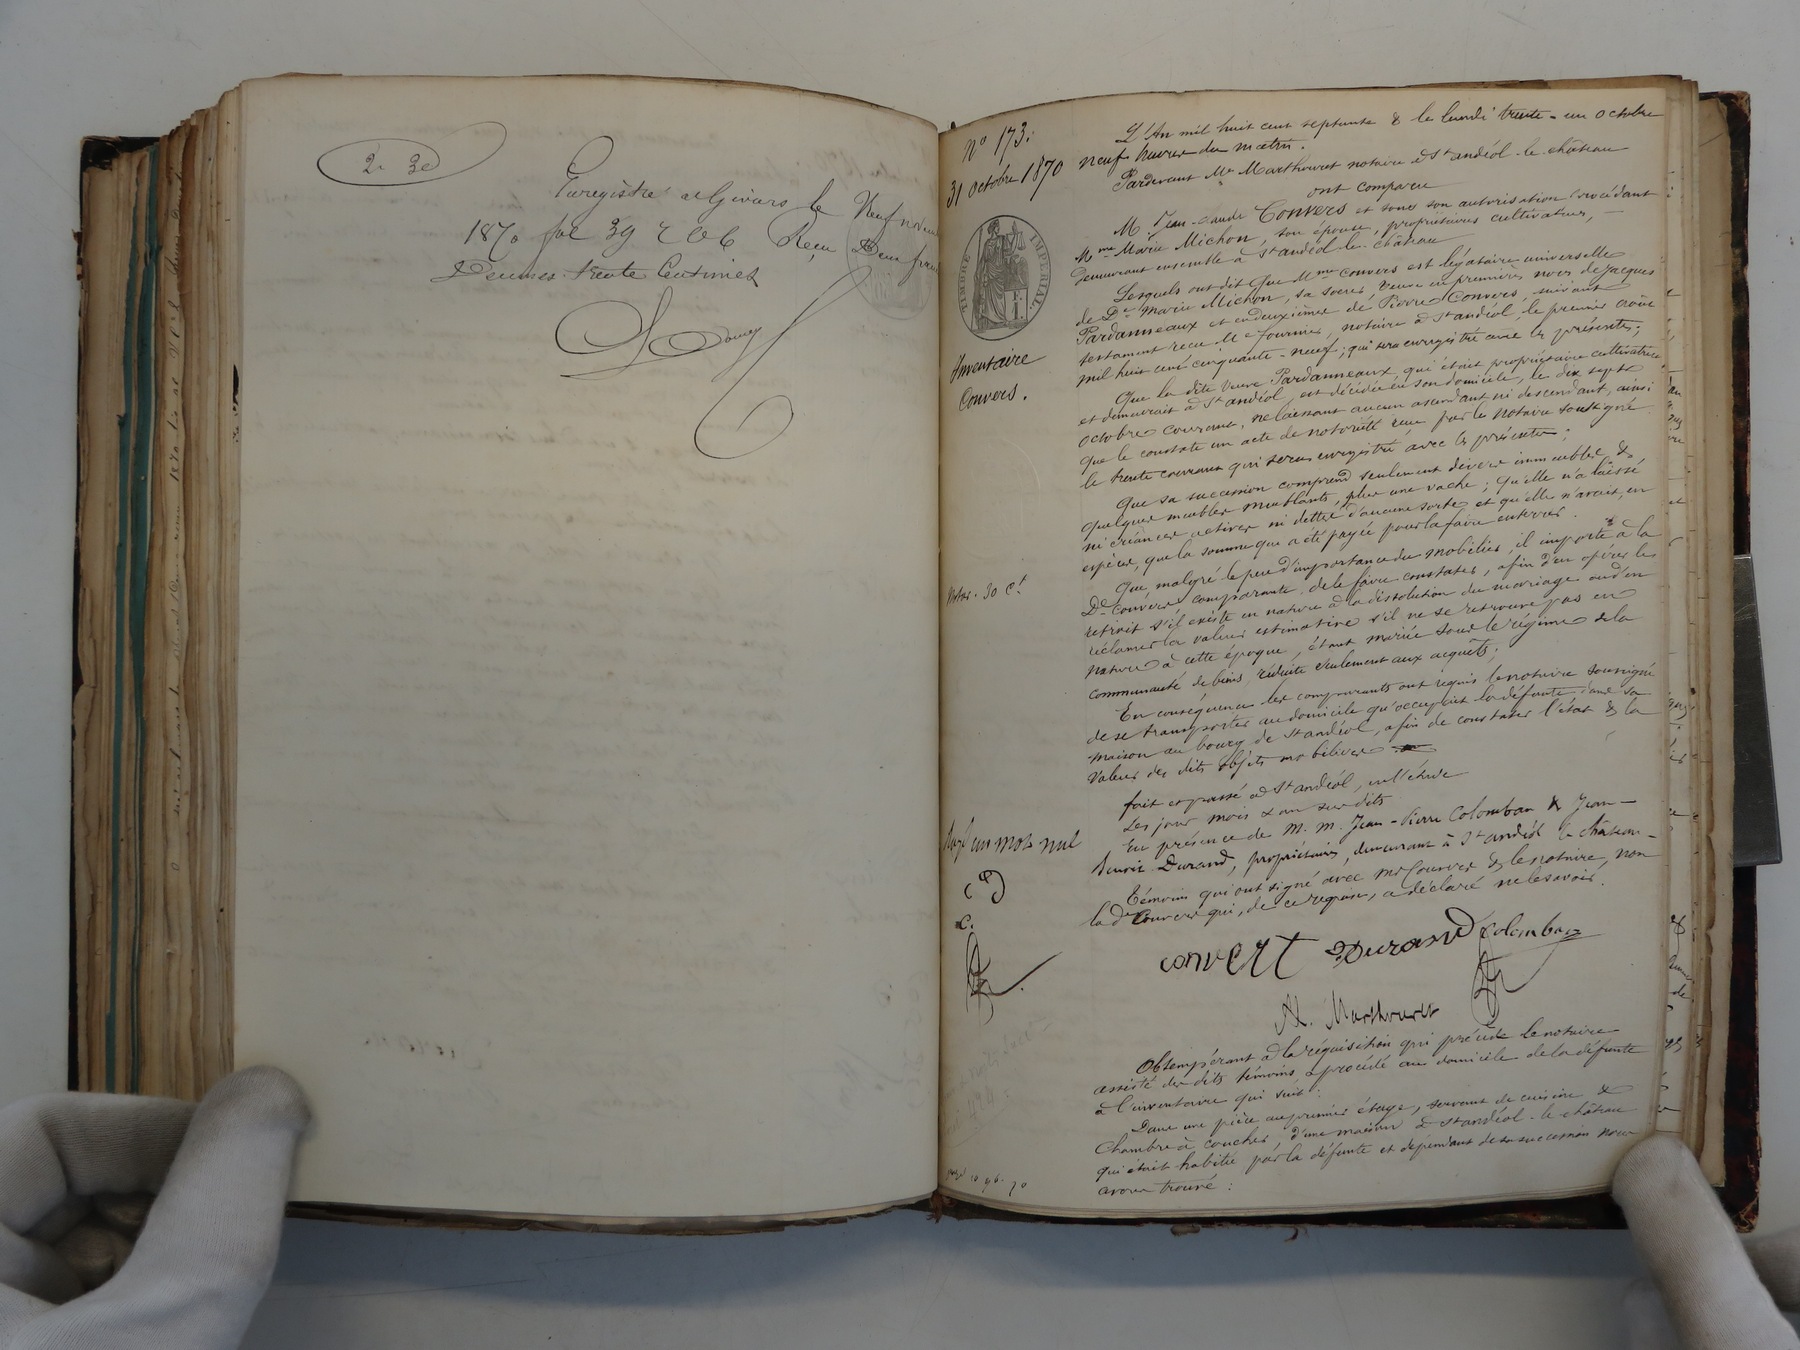 2. 30
Enregistré à Givors le Neuf novem
1870 fol 39 r C 6 Reçu Deux francs
Décimes trente Centimes
N° 173.
31 octobre 1870
TIMBRE IMPÉRIAL
1 F.
Inventaire
Convers.
L'An mil huit cent septante & le lundi trente-un octobre
neuf heures du matin.
Pardevant Me Marthouret notaire à St andéol-le-château
ont comparu
M. Jean-claude Convers et sous son autorisation procédant
Mme Marie Michon, son épouse, propriétaires cultivateurs,
demeurant ensemble à St andéol-le-château
Lesquels ont dit que Mme Convers est légataire universelle
de De Marie Michon, sa soeur, veuve en premières noces de Jacques
Pardanneaux et en deuxièmes de Pierre Convers, suivant
testament reçu Me fournier, notaire à St andéol, le premier août
mil huit cent cinquante-neuf; qui sera enregistré avec les présentes;
Que la dite veuve Pardanneaux, qui était propriétaire cultivatrice
et demeurait à St andéol, est décédée en son domicile, le dix sept
octobre courant, ne laissant aucun ascendant ni descendant, ainsi
que le constate un acte de notoriété reçu par le notaire soussigné
le trente courant qui sera enregistré avec les présentes;
Que sa succession comprend seulement divers immeubles &
quelques meubles meublants, plus une vache; qu'elle n'a laissé
ni créances actives ni dettes d'aucune sorte et qu'elle n'avait, en
espèces, que la somme qui a été payée pour la faire enterrer.
Que, malgré le peu d'importance du mobilier, il importe à la
De Convers comparante de le faire constater, afin d'en opérer le
retrait s'il existe en nature à la dissolution du mariage ou d'en
réclamer la valeur estimative s'il ne se retrouve pas en
nature à cette époque, étant mariée sous le régime de la
communauté de biens, réduite seulement aux acquêts;
En conséquence les comparants ont requis le notaire soussigné
de se transporter au domicile qu'occupait la défunte dans sa
maison au bourg de St andéol, afin de constater l'état & la
valeur des dits objets mobiliers
fait et passé à St andéol, en l'étude
Les jour mois & an susdits
En présence de M. M. Jean-Pierre Colomban & Jean-
Durand, propriétaires, demeurant à St andéol le château-
Témoins qui ont signé avec Mr Convers & le notaire, non
la de Convers qui, de ce requise, a déclaré ne le savoir.
Rayé un mot nul
convert Durand Colomban
Al. Marthouret
Obtempérant à la réquisition qui précède le notaire
assisté des dits témoins a procédé au domicile de la défunte
à l'inventaire qui suit:
Dans une pièce au premier étage, servant de cuisine &
chambre à coucher, d'une maison à St andéol-le-château
qui était habitée par la défunte et dépendant de sa succession nous
avons trouvé: